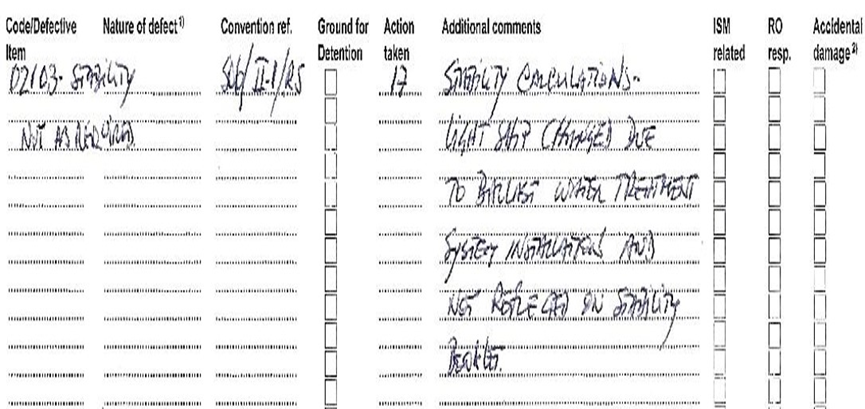 Code/Defective Nature of defect 1) Convention ref. Ground for Action Additional comments ISM RO Accidental
Item Detention taken related resp. damage 2)
02103- STABILITY SOL/II-1/R5 17 STABILITY CALCULATIONS-
NOT AS REQUIRED. LIGHT SHIP CHANGED DUE
TO BALLAST WATER TREATMENT
SYSTEM INSTALLATIONS AND
NOT REFLECTED ON STABILITY
BOOKLET.